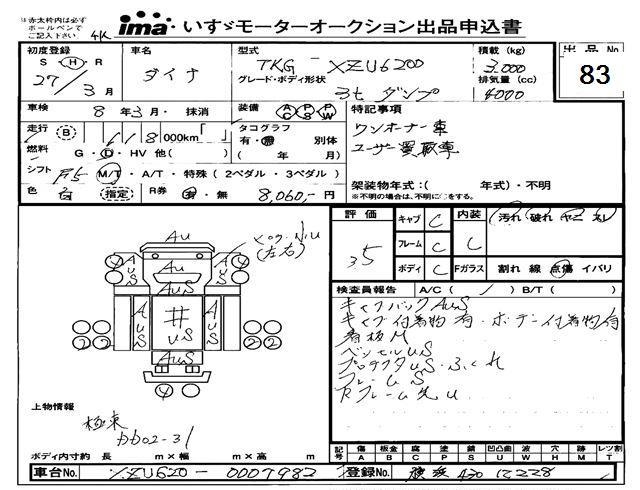 ※赤太枠内は必ず
ボールペンで
ご記入下さい。
4K
ima いすゞモーターオークション出品申込書
出品 No
83
初度登録
S・H・R
27/3月
車名
ダイナ
型式
TKG - XZU620D
グレード・ボディ形状
3t ダンプ
積載 (kg)
3,000
排気量 (cc)
4000
車検
8年3月・抹消
装備
AC PS PW
特記事項
ワンオーナー車
ユーザー買取車
走行
B
118000km
タコグラフ
有・無 別体
( 年 月)
燃料
G・D・HV 他( )
シフト
F5 M/T・A/T・特殊(2ペダル・3ペダル)
色
白 指定
R券
有・無 8,060,-円
架装物年式:( 年式)・不明
※不明の場合は、不明に○をする。
評価
3.5
キャブ C
フレーム C
ボディ C
内装 C
Fガラス
汚れ 破れ ヤニ スレ
割れ 線 点傷 イバリ
検査員報告
A/C( / ) B/T( )
キャブバックAuS
キャブ付着物有・ボデー付着物有
看板M
ベッセルuS
プロテクタuS・ふくれ
フレームS
Rフレーム先u
Au
AuS
AuS
AuS
AuS
AuS
AuS
井
uS
4
4
2 2
2 2
4
(左右)
上物情報
極東
DD02-31
ボディ内寸約 長 m×幅 m×高 m
記号
傷 A
板金 B
腐 C
塗 P
錆 S
凹凸曲 U
波 W
穴 H
跡 M
レツ割 T
車台No.
XZU620-0007982
登録No.
横浜 430 に 2228